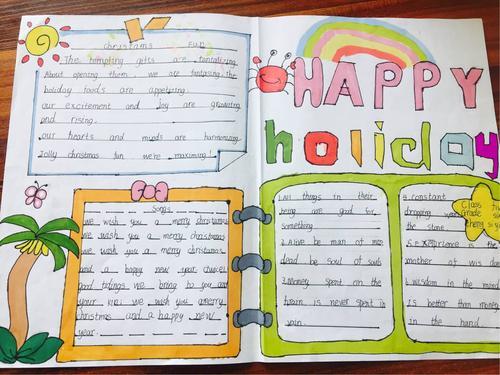 Christams Fun
The tempting gifts are tantalizing
About opening them we are fantasing the
holiday foods are appetizing
our excitement and joy are growing
and rising
our hearts and minds are harmonizing
Jolly christmas fun we're maximing!
HAPPY
holiday
Songs
we wish you a merry christmas
we wish you a merry christmas
we wish you a merry christmas
and a happy new year
good tidings we bring to you and
your we wish you a merry
christmas and a happy new
year.
1.All things in their
being are good for
something
2.Alive be man of men
dead be soul of souls
3.Money spent on the
brain is never spent in
vain.
4.constant
dropping wears
the stone
5.Experience is the
mother of wis dom
6.wisdom in the mind
is better than money
in the hand.
Class
Grade six